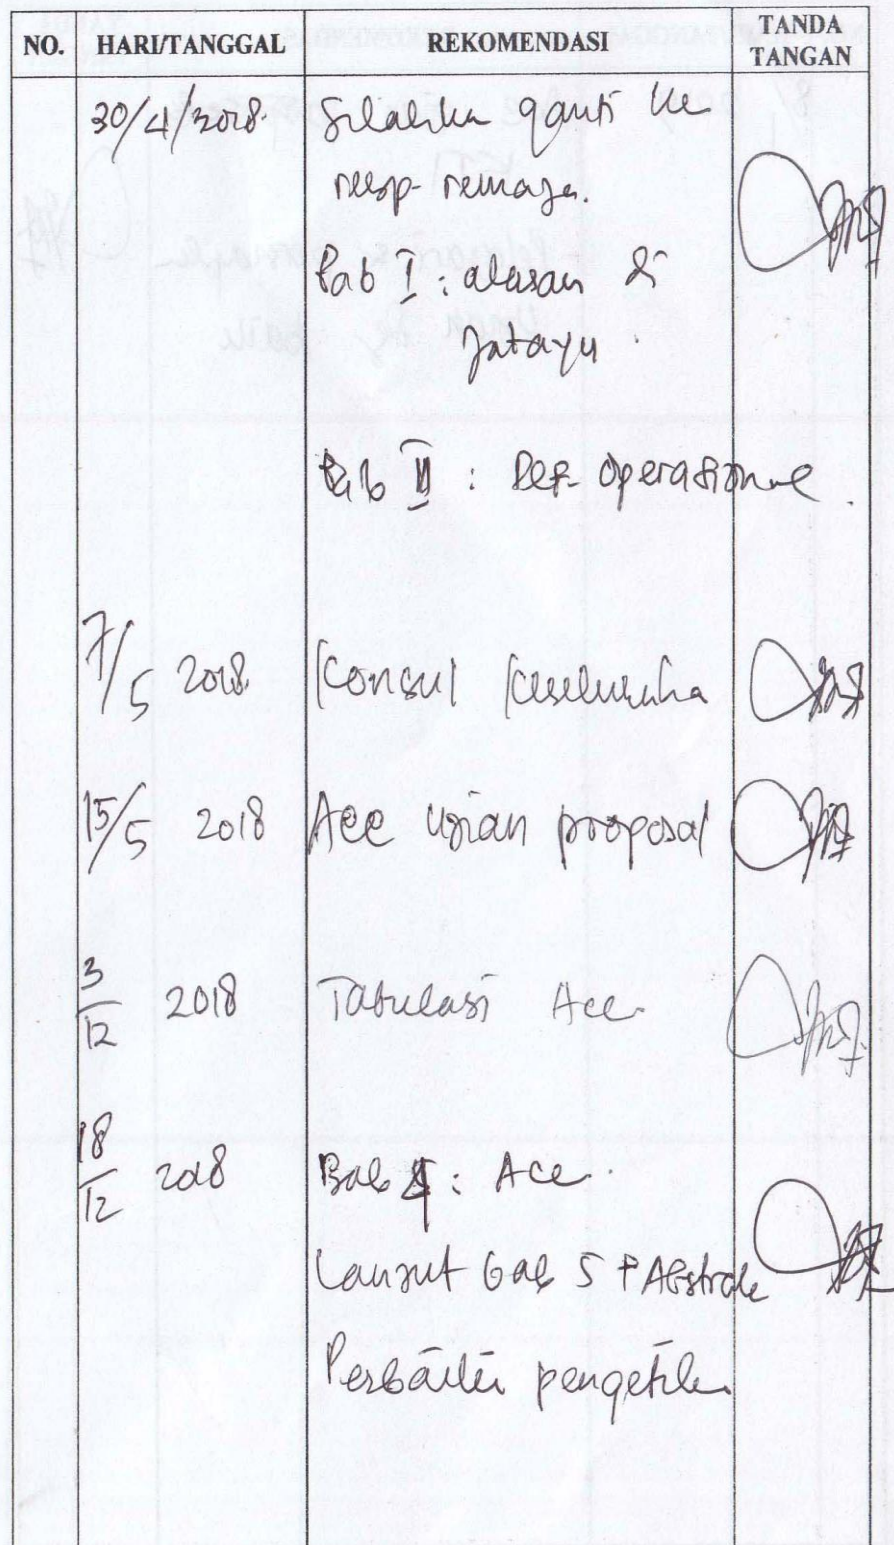 NO. HARI/TANGGAL REKOMENDASI TANDA TANGAN
30/4/2018. Silahka ganti ke
resp. remaja.
Bab I : alasan di
Jatayu
Bab II : Def. Operasional
7/5 2018 Konsul keseluruha
15/5 2018 Acc ujian proposal
3/12 2018 Tabulasi Acc
18/12 2018 Bab : Acc.
Lanjut Bab 5 + Abstrak
Perbaiki pengetika